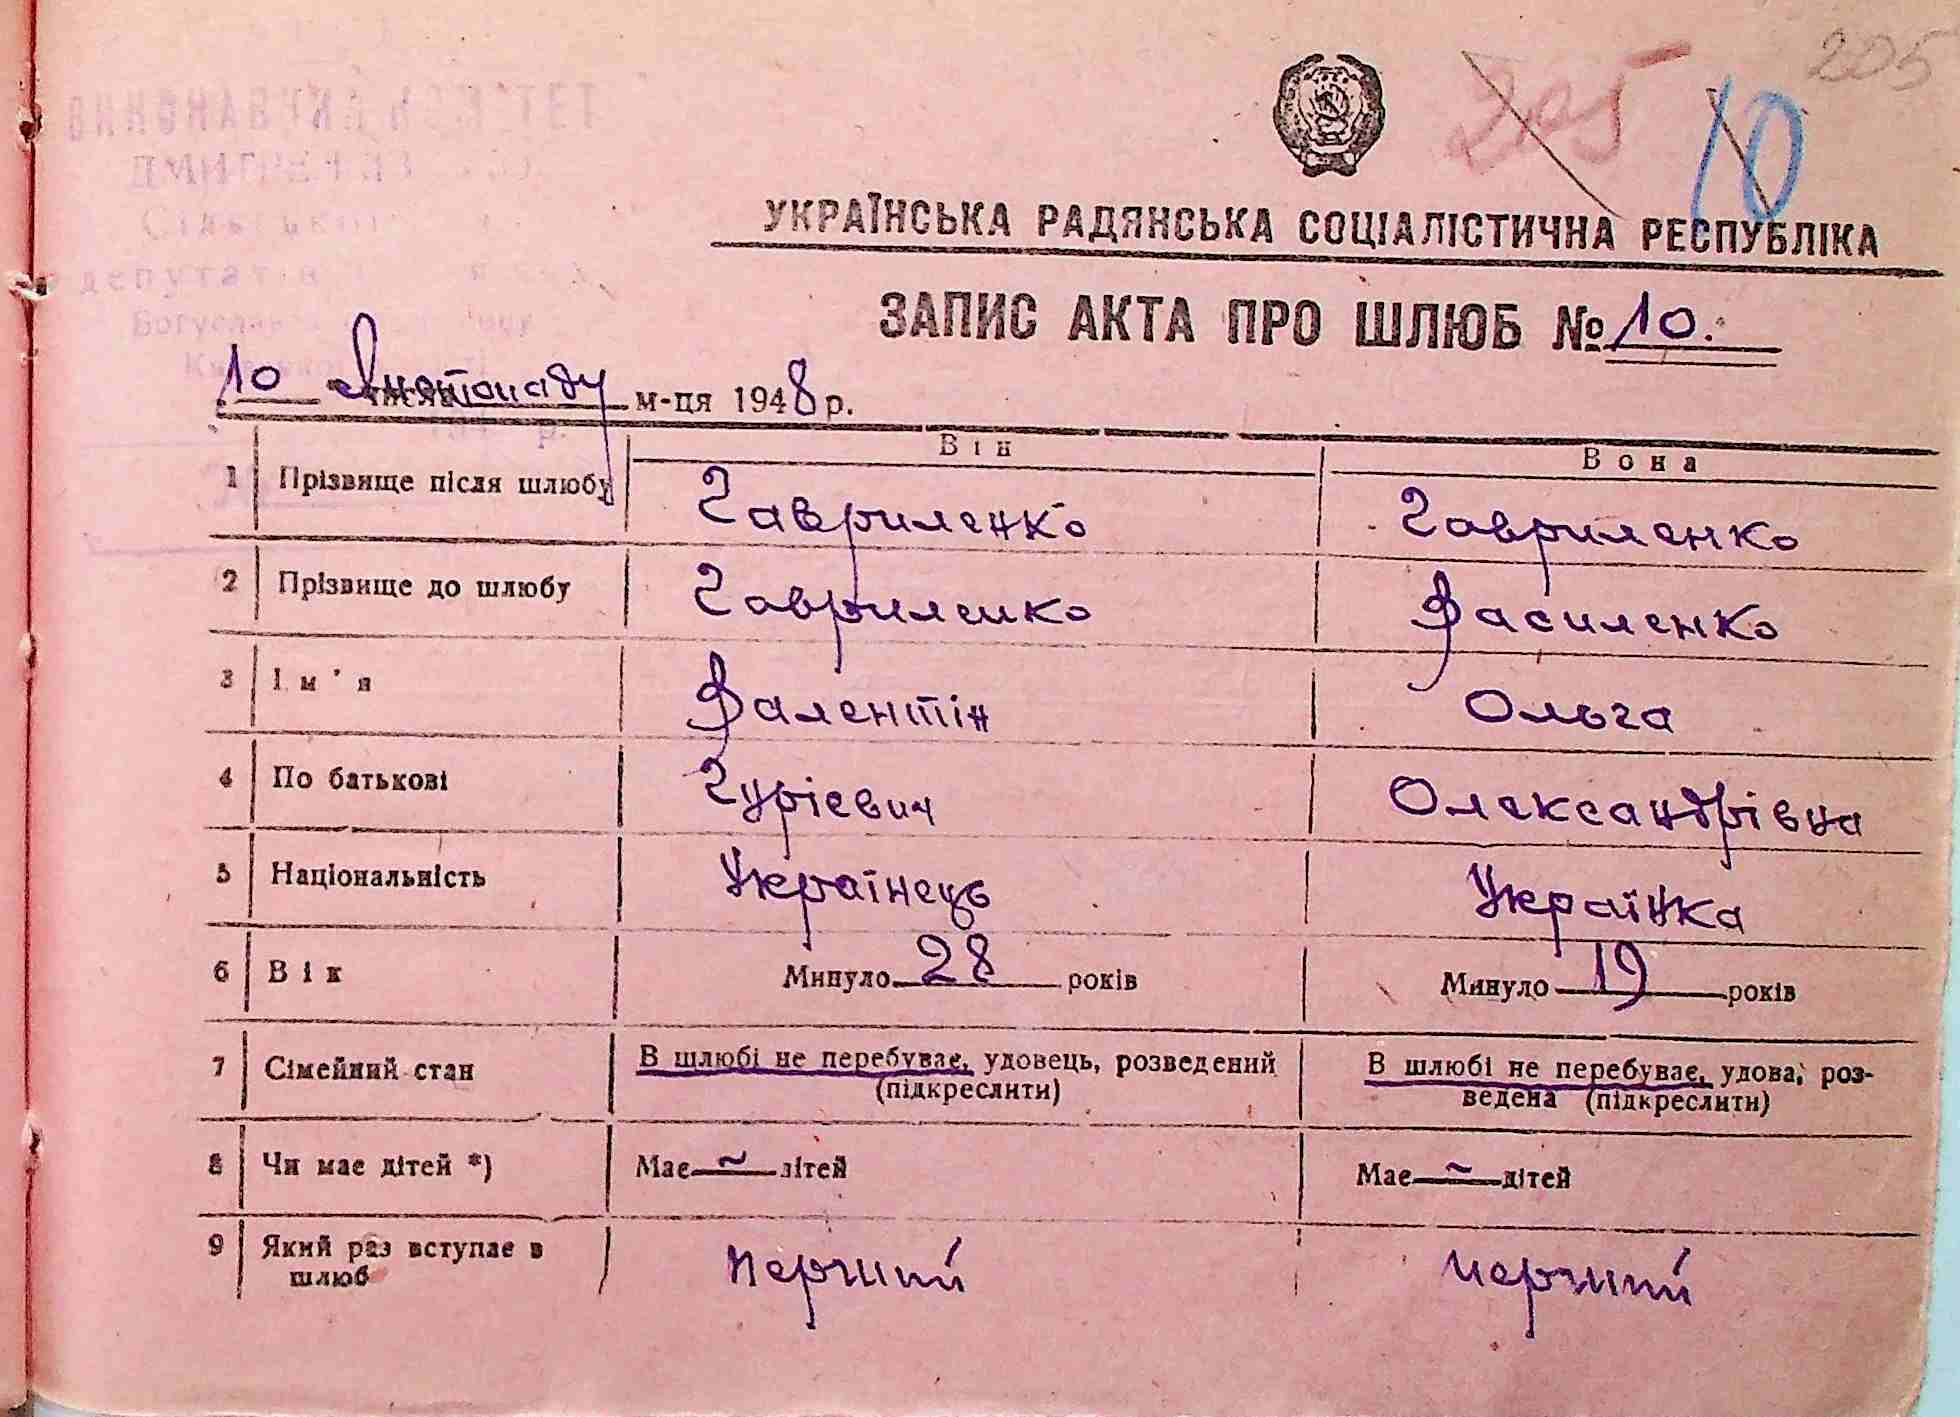 205
205
10
УКРАЇНСЬКА РАДЯНСЬКА СОЦІАЛІСТИЧНА РЕСПУБЛІКА
ЗАПИС АКТА ПРО ШЛЮБ № 10.
10 Листопаду м-ця 1948 р.
Він Вона
1 Прізвище після шлюбу Гавриленко Гавриленко
2 Прізвище до шлюбу Гавриленко Василенко
3 Ім'я Валентін Ольга
4 По батькові Гурієвич Олександрівна
5 Національність Українець Українка
6 Вік Минуло 28 років Минуло 19 років
7 Сімейний стан В шлюбі не перебуває, удовець, розведений В шлюбі не перебуває, удова, роз-
(підкреслити) ведена (підкреслити)
8 Чи має дітей *) Має ~ дітей Має ~ дітей
9 Який раз вступає в перший перший
шлюб